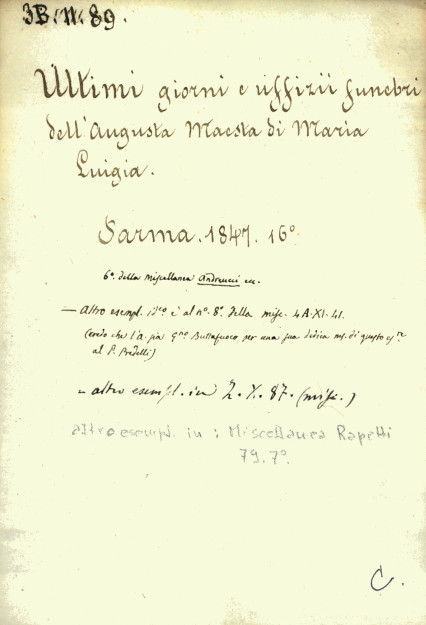 3B.11.89.
Ultimi giorni e uffizii funebri
dell'Augusta Maesta di Maria
Luigia.
Parma. 1847. 16°
6° della Miscellanea Andreucci ec.
— Altro esempl. id.co è al n°. 8°. della misc. 4A.XI.41.
(credo che l'a. sia G.no Buttafuoco per una sua dedica ms. di questo es.re
al P. Predelli)
– altro esempl. in 2.X.87. (misc.)
altro esempl. in : Miscellanea Rapetti
79.7°.
C.